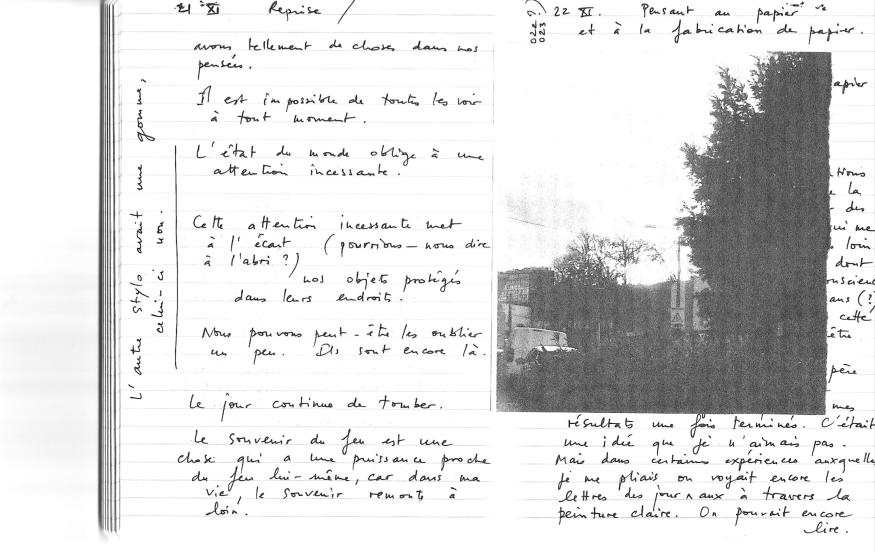 21 XI Reprise /
avons tellement de choses dans nos
pensées.
Il est impossible de toutes les voir
à tout moment.
L'état du monde oblige à une
attention incessante.
Cette attention incessante met
à l'écart (pourrions-nous dire
à l'abri ?)
nos objets protégés
dans leurs endroits.
Nous pouvons peut-être les oublier
un peu. Ils sont encore là.
Le jour continue de tomber.
Le souvenir du feu est une
chose qui a une puissance proche
du feu lui-même, car dans ma
vie, le souvenir remonte à
loin.
L'autre stylo avait une gomme,
celui-ci non.
022
023
22 XI. Pensant au papier
et à la fabrication de papier.
apier
Nous
la
des
qui me
loin
dont
ans (?
cette
être
père
mes
résultats une fois terminés. C'était
une idée que je n'aimais pas.
Mais dans certaines expériences auxquelles
je me pliais on voyait encore les
lettres des journaux à travers la
peinture claire. On pouvait encore
lire.